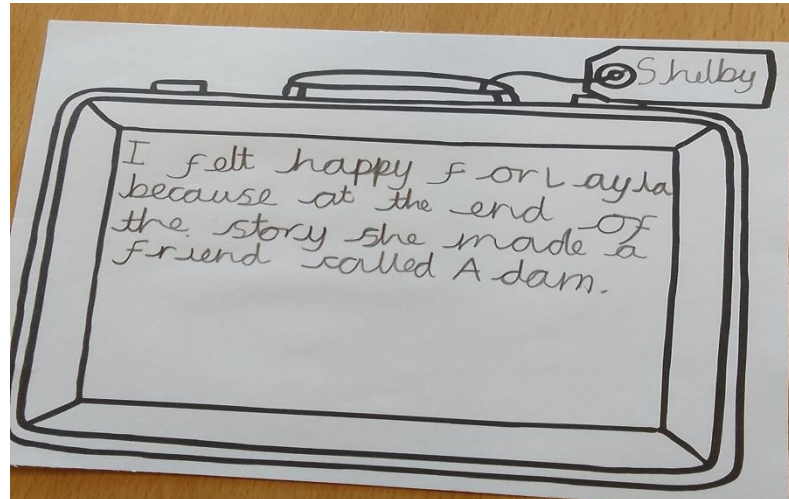 Shelby
I felt happy for Layla
because at the end of
the story she made a
friend called Adam.